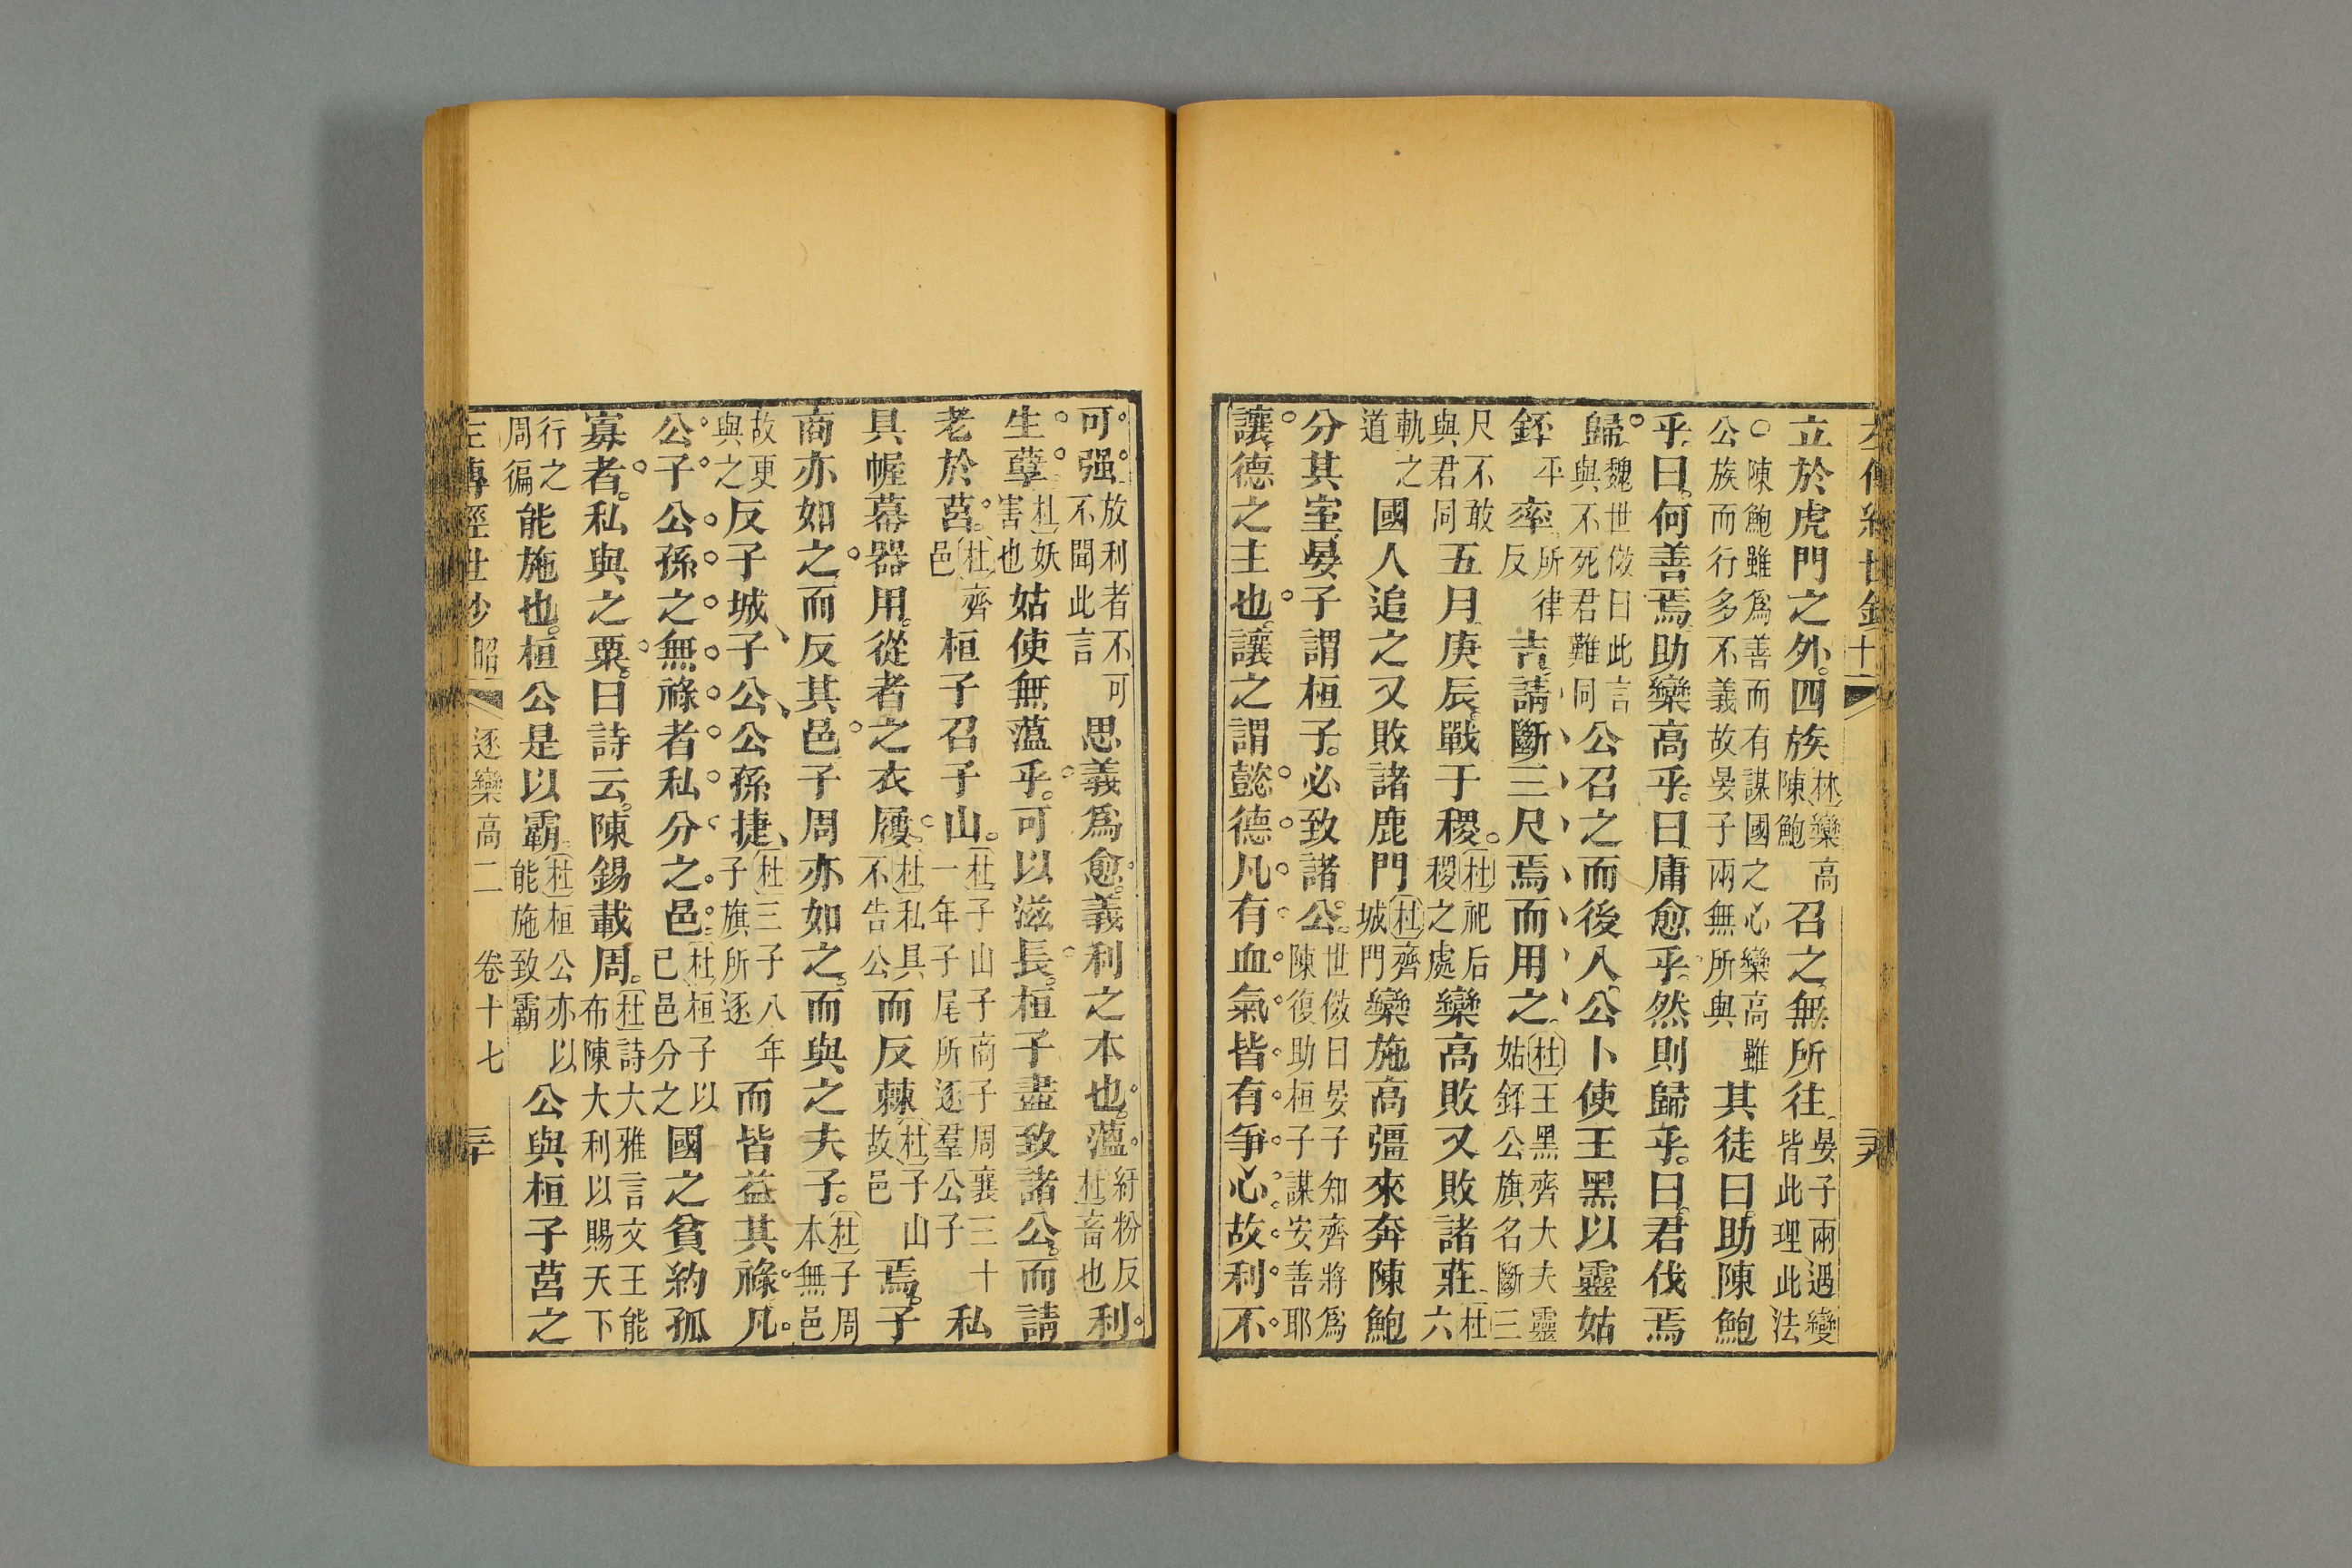 立於虎門之外四族林欒高陳鮑召之無所往晏子兩遇變皆此理此法
陳鮑雖爲善而有謀國之心欒高雖公族而行多不義故晏子兩無所與其徒曰助陳鮑
乎曰何善焉助欒高乎曰庸愈乎然則歸乎曰君伐焉
歸魏世傚曰此言與不死君難同公召之而後入公卜使王黑以靈姑
銔平率所律反吉請斷三尺焉而用之杜王黑齊大夫靈姑銔公旗名斷三
尺不敢與君同五月庚辰戰于稷杜祀后稷之處欒高敗又敗諸莊杜六
軌之道國人追之又敗諸鹿門杜齊城門欒施高彊來奔陳鮑
分其室晏子謂桓子必致諸公世傚曰晏子知齊將爲陳復助桓子謀安善耶
讓德之主也讓之謂懿德凡有血氣皆有爭心故利不
可强放利者不可不聞此言思義爲愈義利之本也蘊紆粉反杜畜也利
生孽杜妖害也姑使無蘊乎可以滋長桓子盡致諸公而請
老於莒杜齊邑桓子召子山杜子山子商子周襄三十一年子尾所逐羣公子私
具幄幕器用從者之衣屨杜私具不告公而反棘杜子山故邑焉子
商亦如之而反其邑子周亦如之而與之夫子杜子周本無邑
故更與之反子城子公公孫捷杜三子八年子旗所逐而皆益其祿凡
公子公孫之無祿者私分之邑杜桓子以已邑分之國之貧約孤
寡者私與之粟曰詩云陳錫載周杜詩大雅言文王能布陳大利以賜天下
行之周徧能施也桓公是以霸杜桓公亦以能施致霸公與桓子莒之
左傳經世鈔 昭 逐欒高二 卷十七 三十